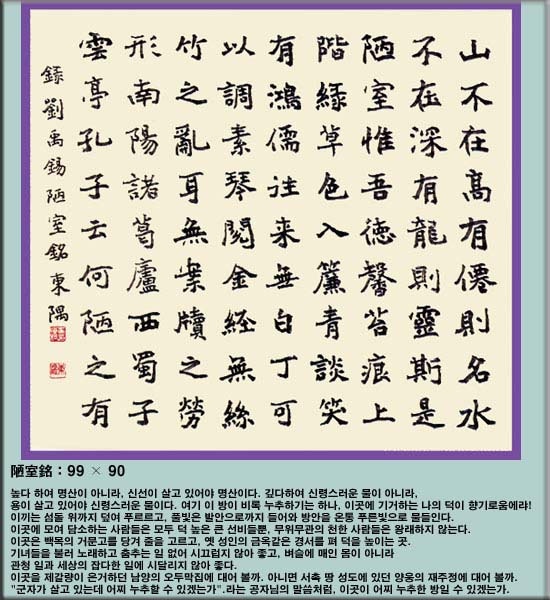 山不在高有僊則名水
不在深有龍則靈斯是
陋室惟吾徳馨苔痕上
階緑草色入簾青談笑
有鴻儒往来無白丁可
以調素琴閲金経無絲
竹之亂耳無案牘之勞
形南陽諸葛廬西蜀子
雲亭孔子云何陋之有
録劉禹錫陋室銘東隅
陋室銘 : 99 × 90
높다 하여 명산이 아니라, 신선이 살고 있어야 명산이다. 깊다하여 신령스러운 물이 아니라,
용이 살고 있어야 신령스러운 물이다. 여기 이 방이 비록 누추하기는 하나, 이곳에 기거하는 나의 덕이 향기로움에랴!
이끼는 섬돌 위까지 덮어 푸르르고, 풀빛은 발안으로까지 들어와 방안을 온통 푸른빛으로 물들인다.
이곳에 모여 담소하는 사람들은 모두 덕 높은 큰 선비들뿐, 무위무관의 천한 사람들은 왕래하지 않는다.
이곳은 백목의 거문고를 당겨 줄을 고르고, 옛 성인의 금옥같은 경서를 펴 덕을 높이는 곳.
기녀들을 불러 노래하고 춤추는 일 없어 시끄럽지 않아 좋고, 벼슬에 매인 몸이 아니라
관청 일과 세상의 잡다한 일에 시달리지 않아 좋다.
이곳을 제갈량이 은거하던 남양의 오두막집에 대어 볼까. 아니면 서촉 땅 성도에 있던 양웅의 재주정에 대어 볼까.
"군자가 살고 있는데 어찌 누추할 수 있겠는가".라는 공자님의 말씀처럼, 이곳이 어찌 누추한 방일 수 있겠는가.